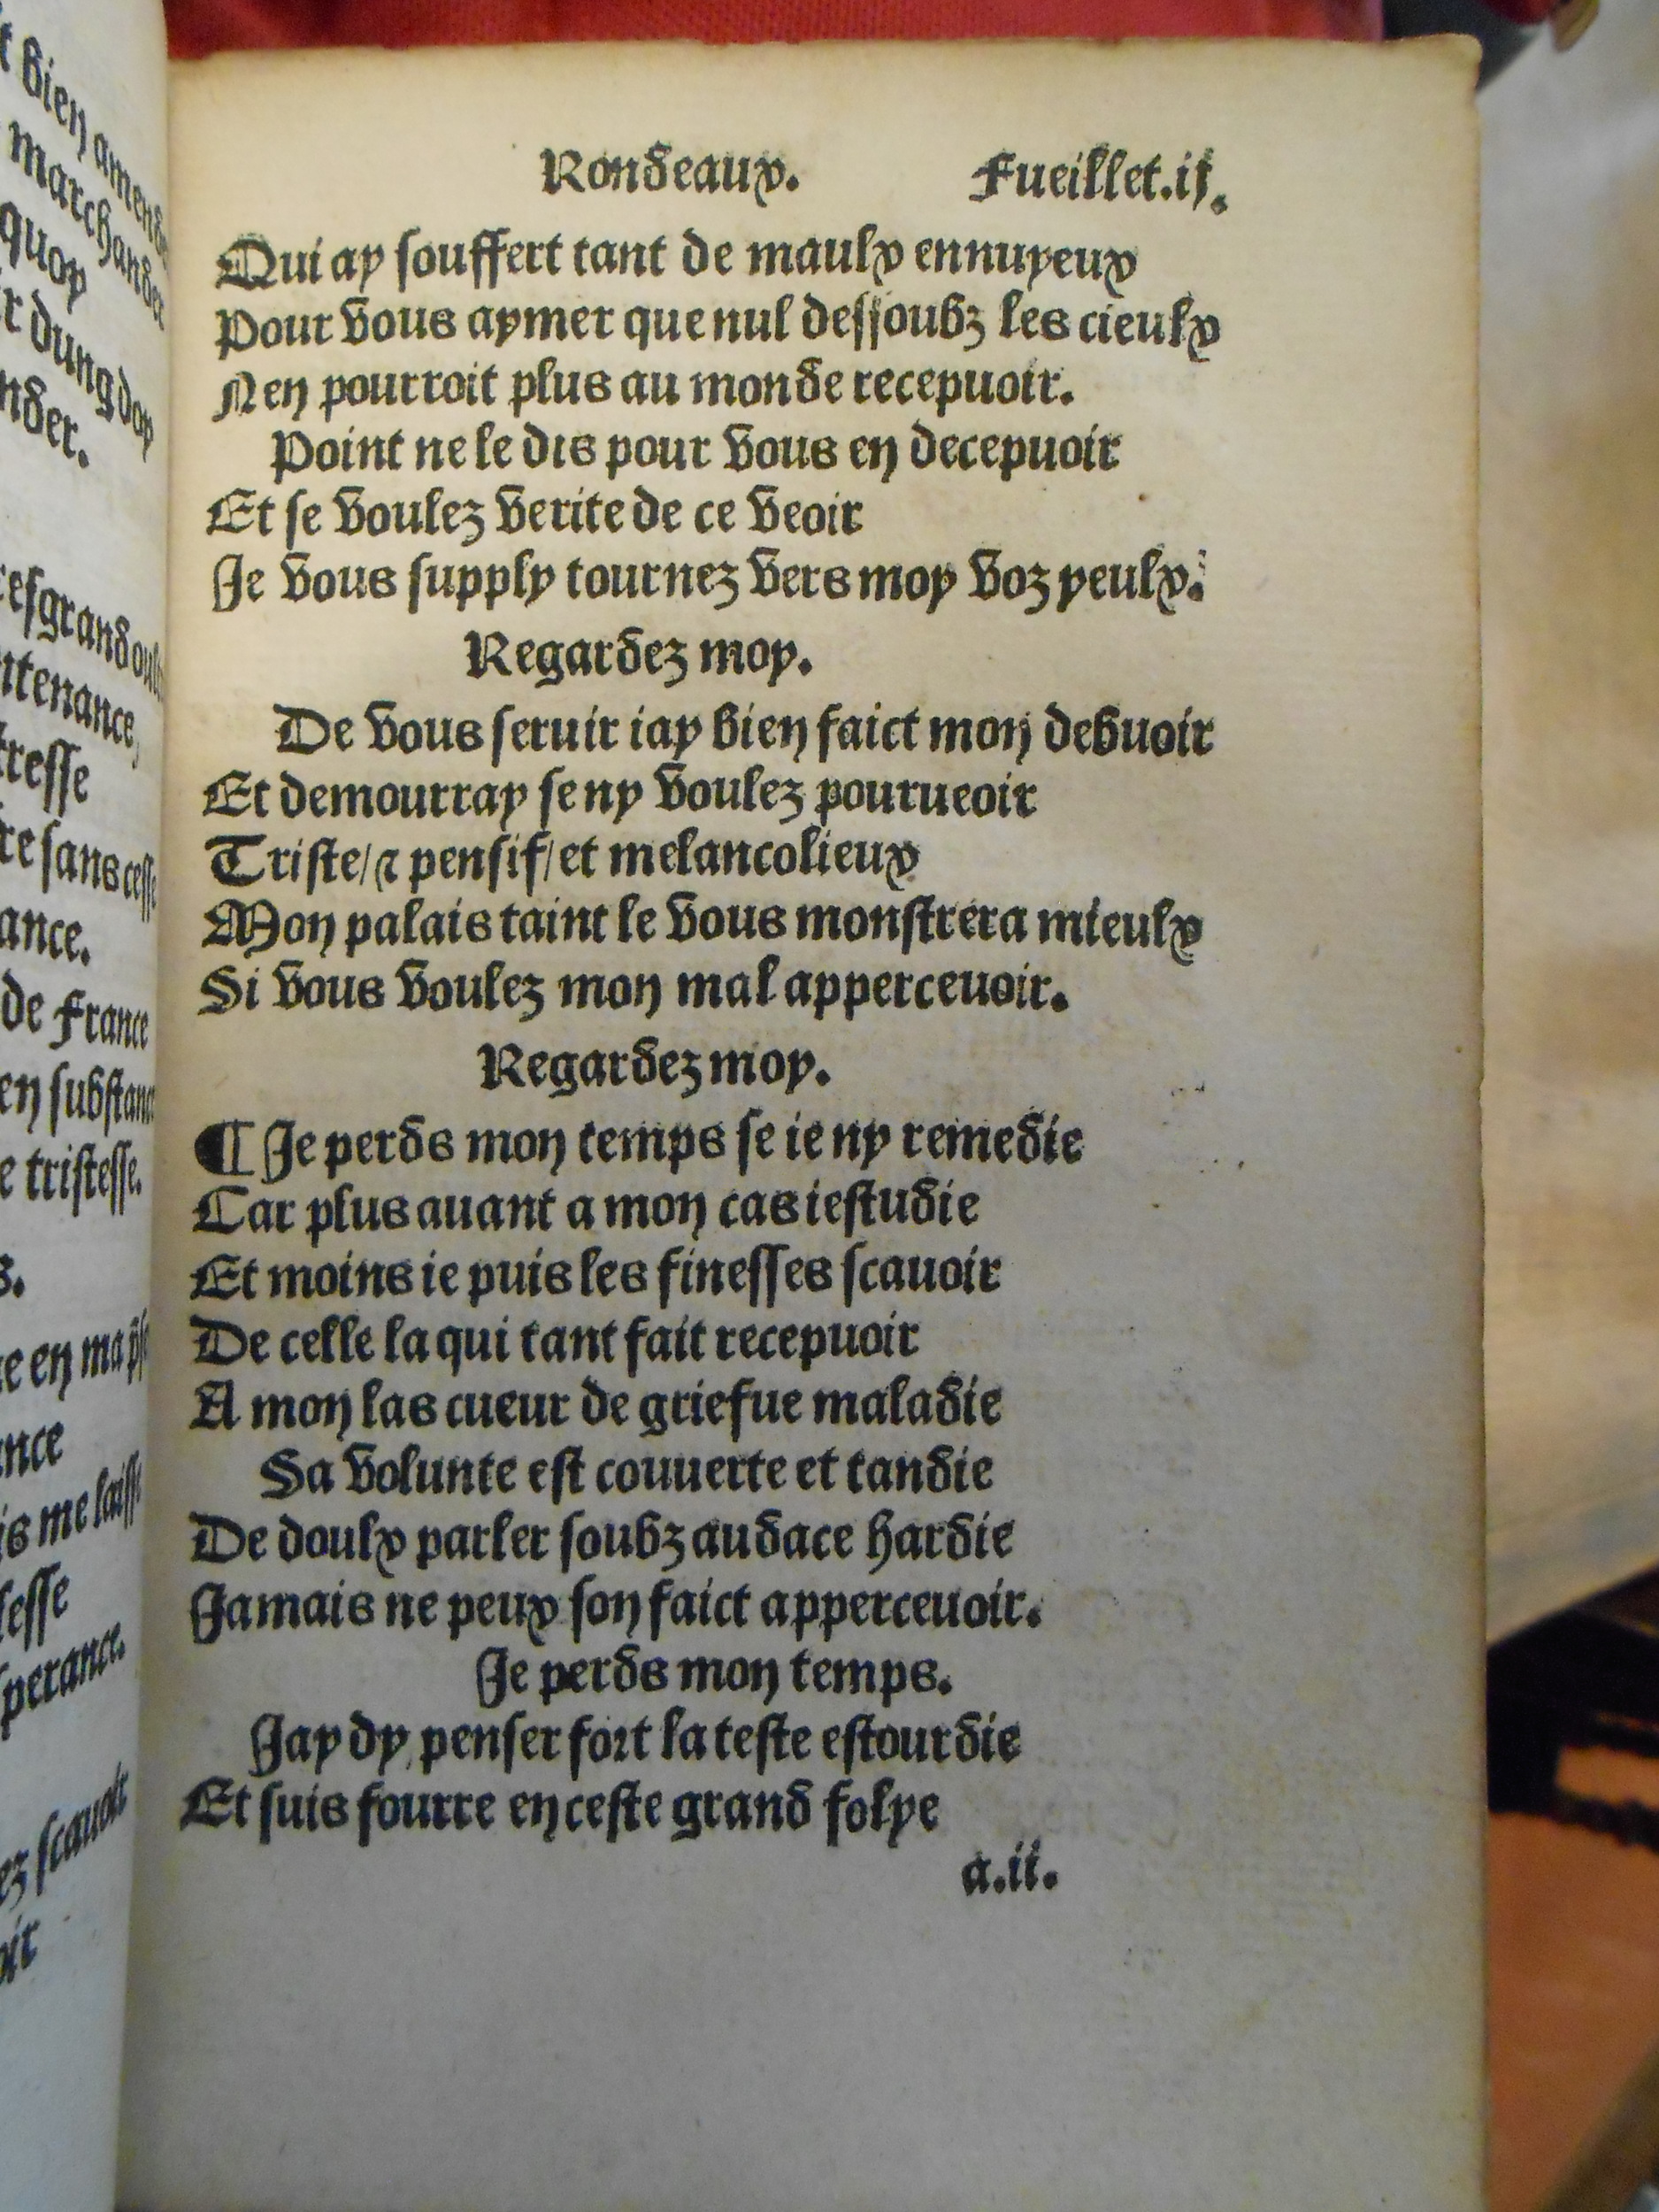 t bien amender
marchander
quoy
r dung doy
nder.
tenance,
tresse
re sans cesse
ance.
de France
en substance
e tristesse.
s.
e en ma
nce
is me laisse
sesse
sperance.
ez scauoir
oir
Rondeaux. Fueillet.ij.
Qui ay souffert tant de maulx ennuyeux
Pour vous aymer que nul dessoubz les cieulx
Nen pourroit plus au monde recepuoir.
Point ne le dis pour vous en decepuoir
Et se voulez verite de ce veoir
Je vous supply tournez vers moy voz yeulx.
Regardez moy.
De vous seruir iay bien faict mon debuoir
Et demourray se ny voulez pourueoir
Triste/⁊ pensif/et melancolieux
Mon palais taint le vous monstrera mieulx
Si vous voulez mon mal apperceuoir.
Regardez moy.
¶ Je perds mon temps se ie ny remedie
Car plus auant a mon cas iestudie
Et moins ie puis les finesses scauoir
De celle la qui tant fait recepuoir
A mon las cueur de griefue maladie
Sa volunte est couuerte et tandie
De doulx parler soubz audace hardie
Jamais ne peux son faict apperceuoir.
Je perds mon temps.
Jay dy penser fort la teste estourdie
Et suis fourre en ceste grand folye
a.ii.